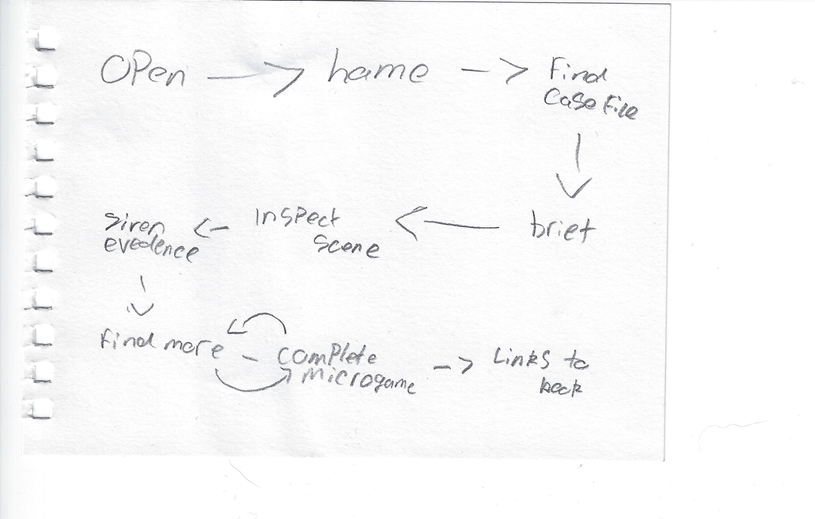 OPen → home → Find
Case File
brief
InSPect
Scene
evedence
Find more
complete
microgame
Links to